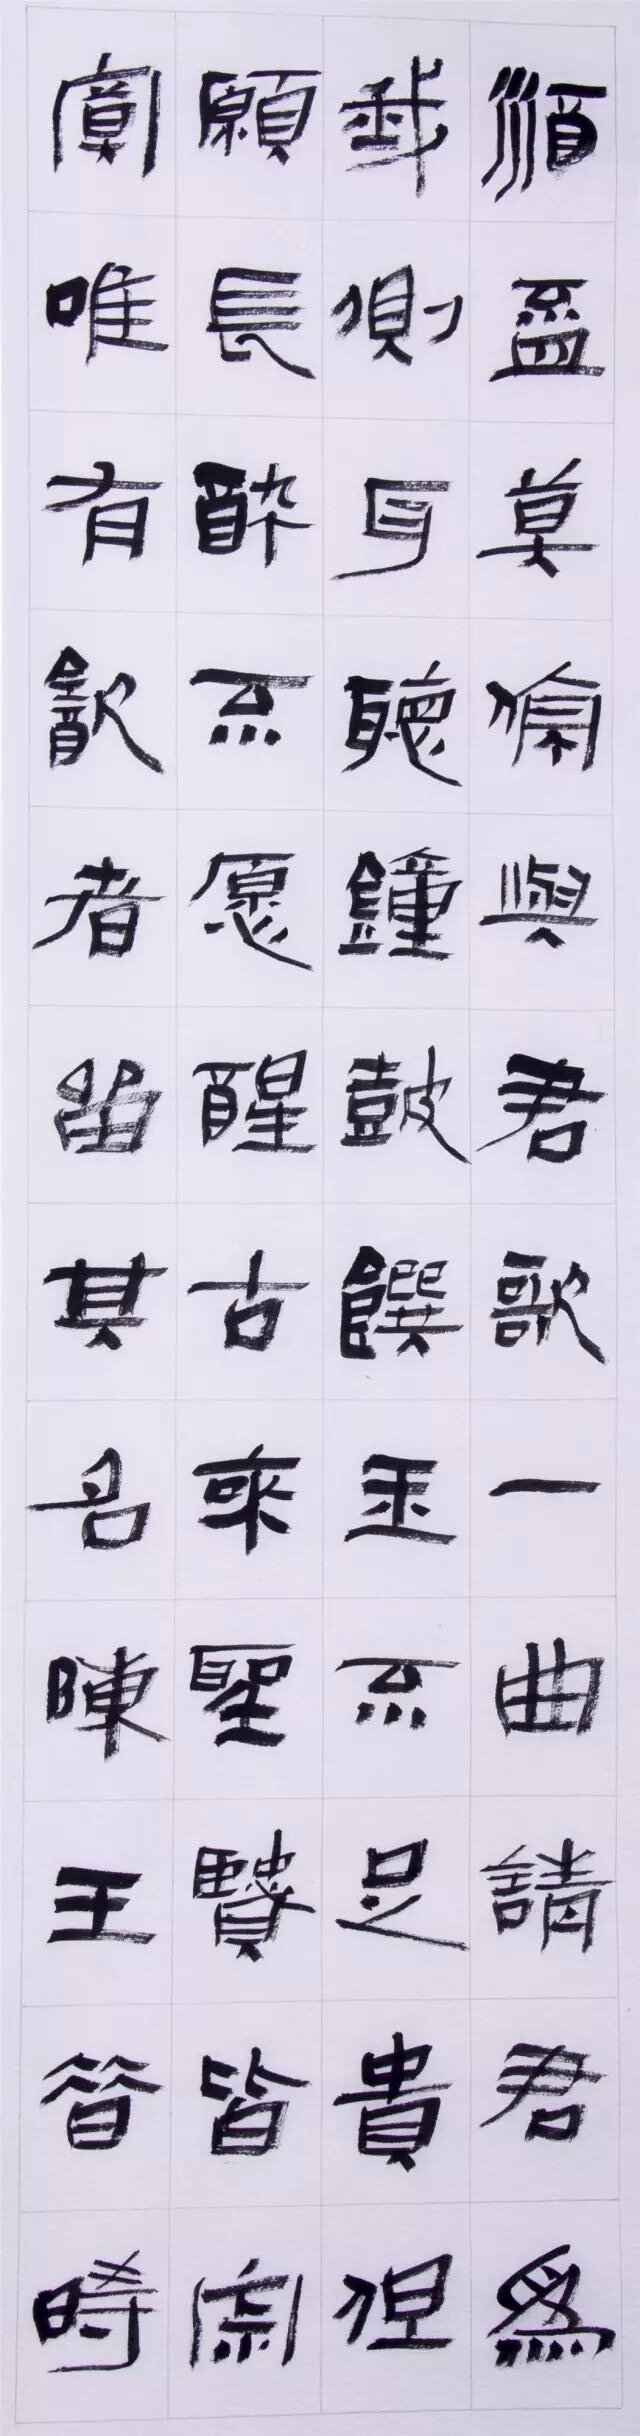 酒盃莫停與君歌一曲請君爲
我側耳聽鐘皷饌玉不足貴但
願長酔不愿醒古來聖賢皆寂
寞唯有飲者留其名陳王昔時